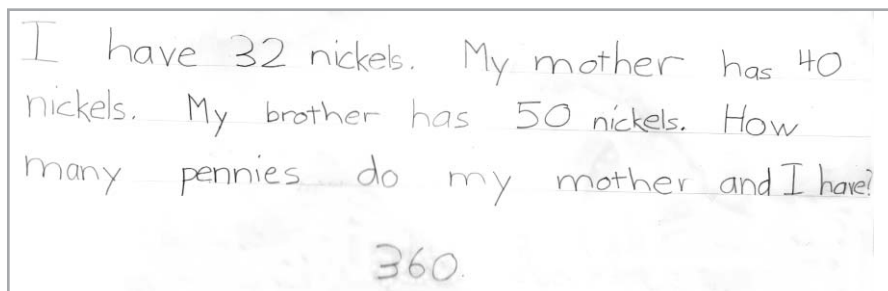 I have 32 nickels. My mother has 40
nickels. My brother has 50 nickels. How
many pennies do my mother and I have?
360.